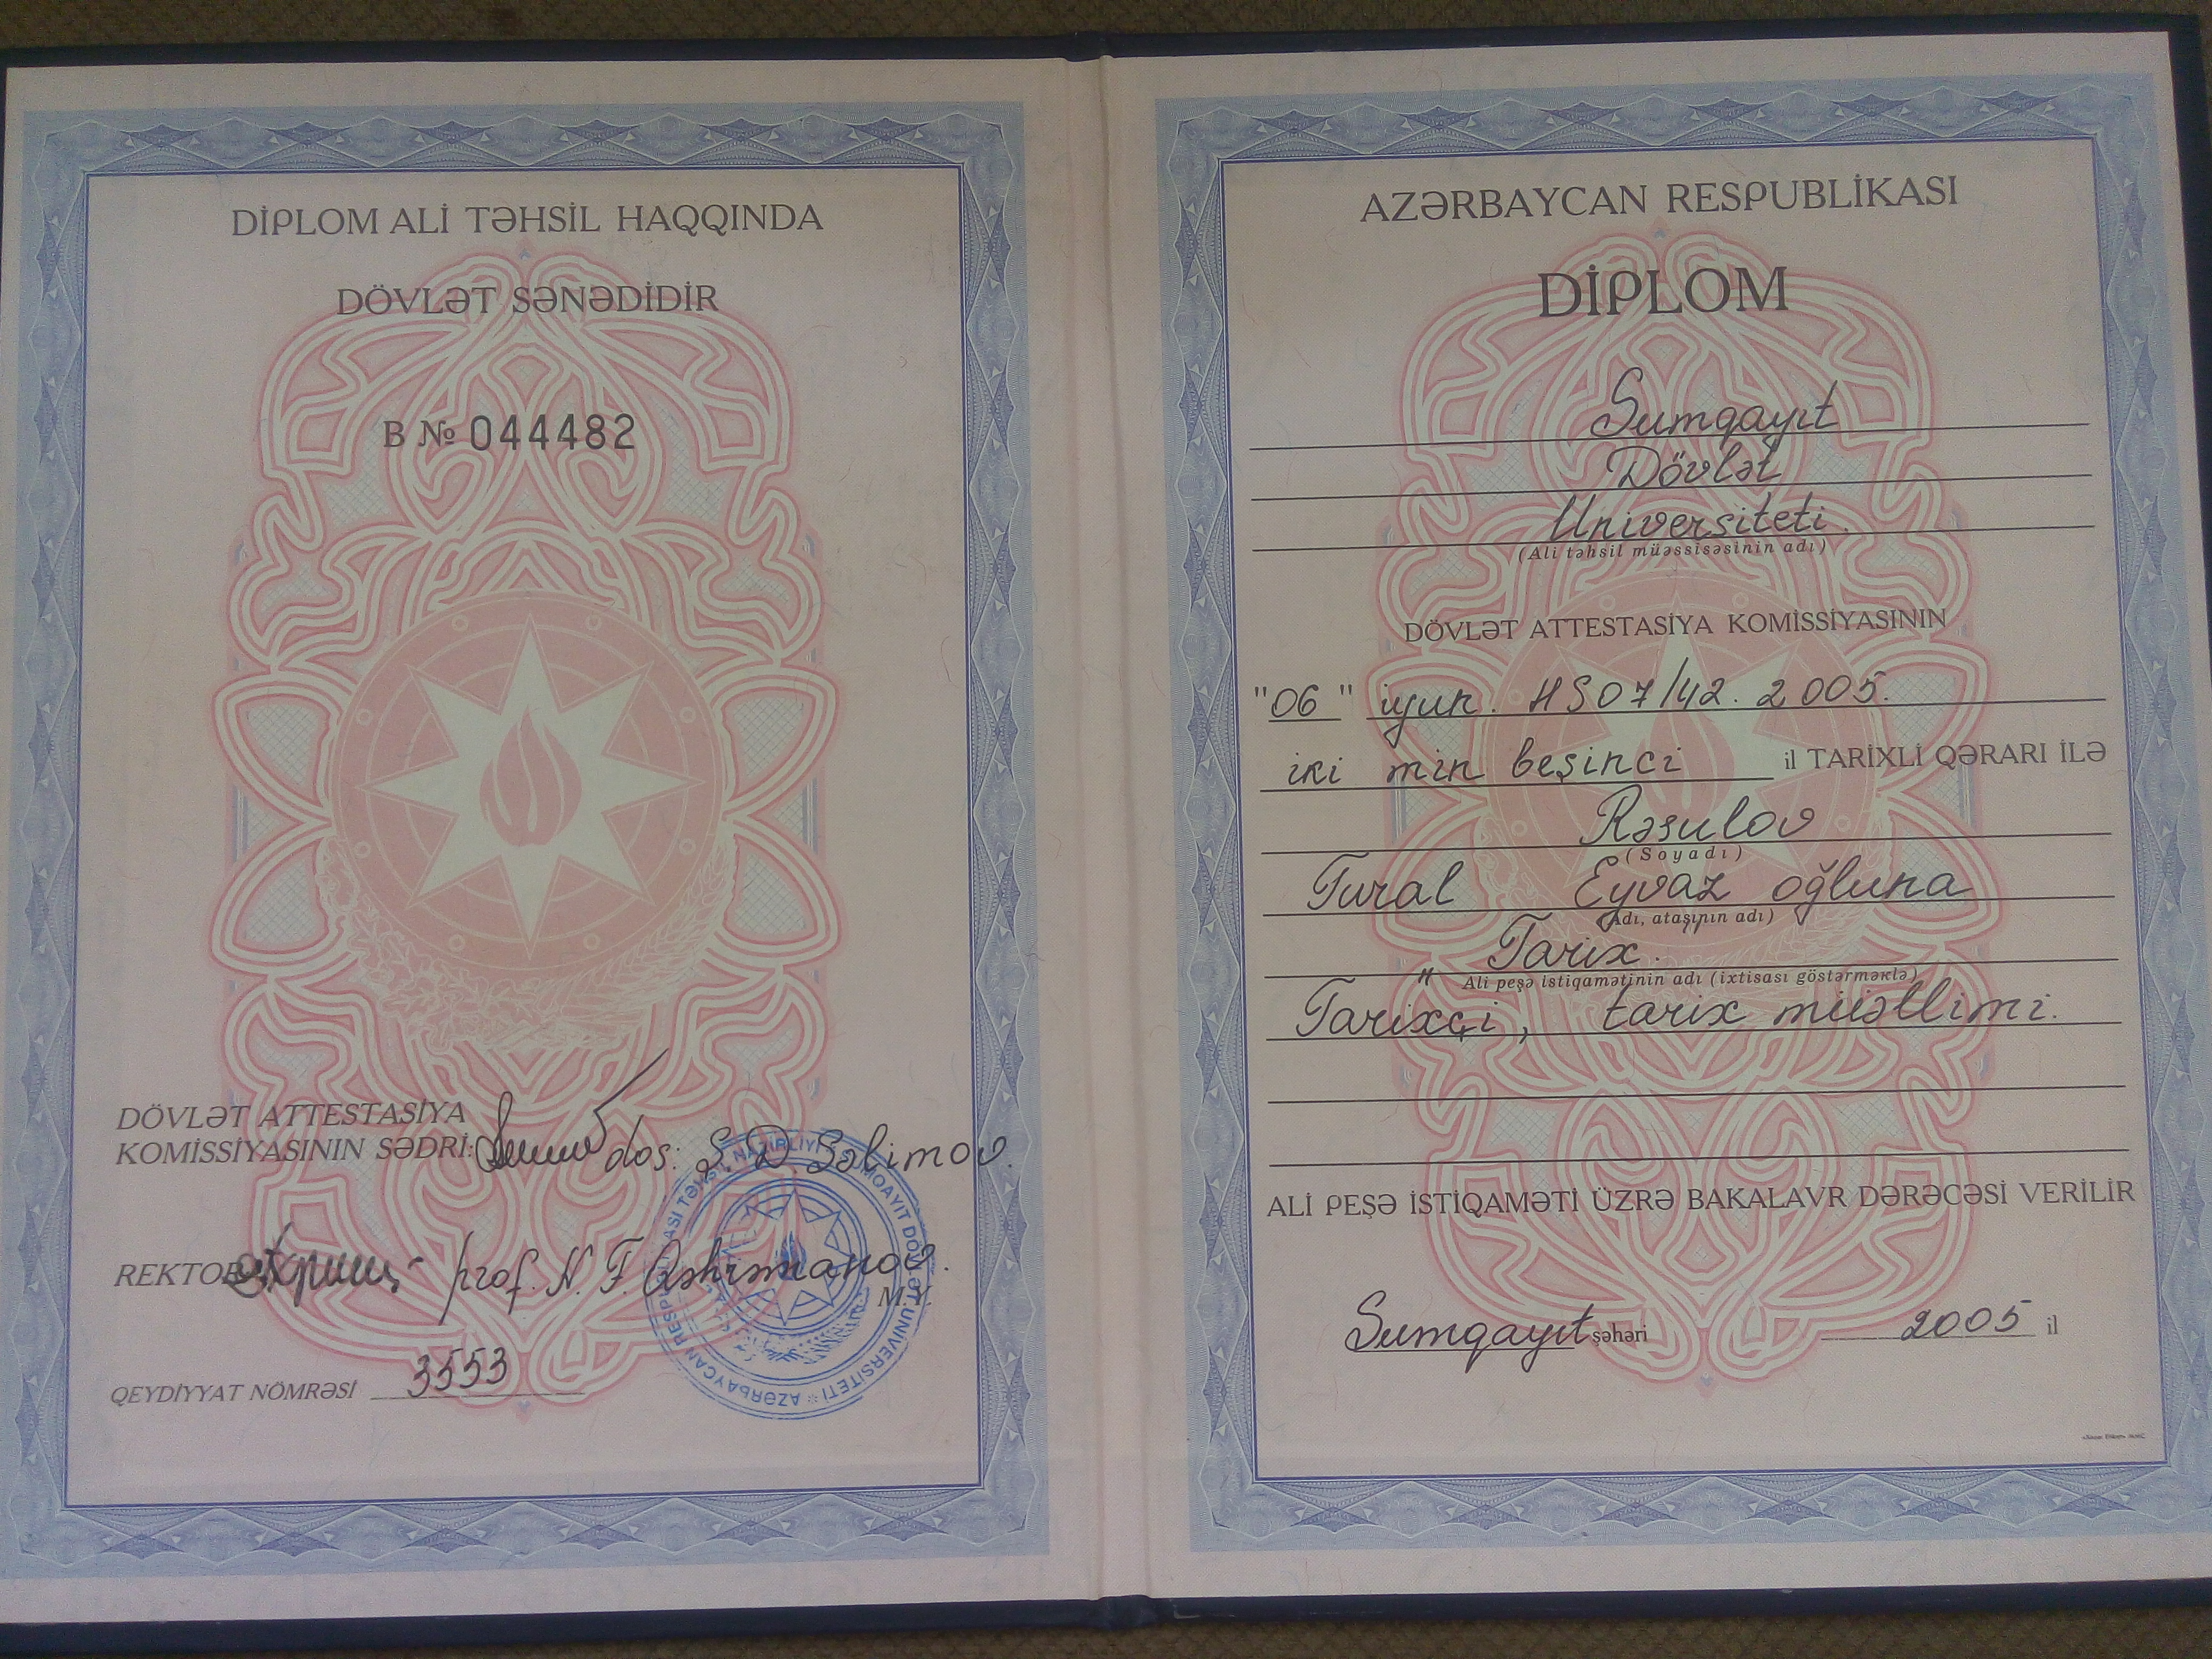 DİPLOM ALİ TƏHSİL HAQQINDA
DÖVLƏT SƏNƏDİDİR
B № 044482
DÖVLƏT ATTESTASİYA
KOMİSSİYASININ SƏDRİ: dos: S. D. Səlimov.
REKTOR prof. N. F. Qəhrəmanov.
M.Y.
QEYDİYYAT NÖMRƏSİ 3553
AZƏRBAYCAN RESPUBLİKASI TƏHSİL NAZİRLİYİ SUMQAYIT DÖVLƏT UNİVERSİTETİ
AZƏRBAYCAN RESPUBLİKASI
DİPLOM
Sumqayıt
Dövlət
Universiteti.
(Ali təhsil müəssisəsinin adı)
DÖVLƏT ATTESTASİYA KOMİSSİYASININ
"06" iyun. HS07/42. 2005.
iki min beşinci il TARİXLİ QƏRARI İLƏ
Rəsulov
(Soyadı)
Tural Eyvaz oğluna
(Adı, atasının adı)
Tarix.
Ali peşə istiqamətinin adı (ixtisası göstərməklə)
Tarixçi, tarix müəllimi.
ALİ PEŞƏ İSTİQAMƏTİ ÜZRƏ BAKALAVR DƏRƏCƏSİ VERİLİR
Sumqayıt şəhəri 2005 il